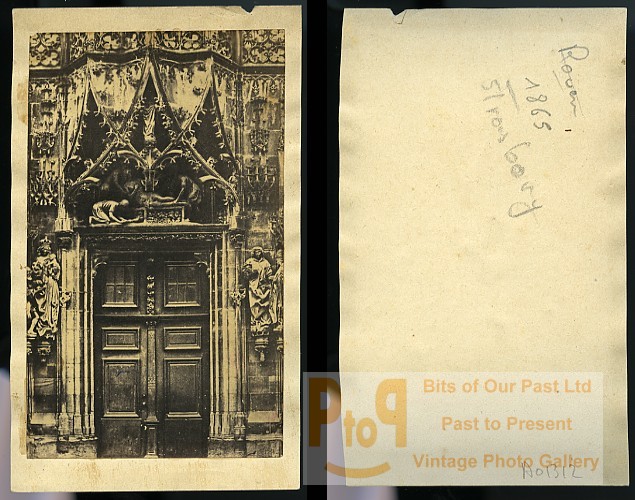 Rouen
1865
Strasbourg
PtoP
Bits of Our Past Ltd
Past to Present
Vintage Photo Gallery
A01312